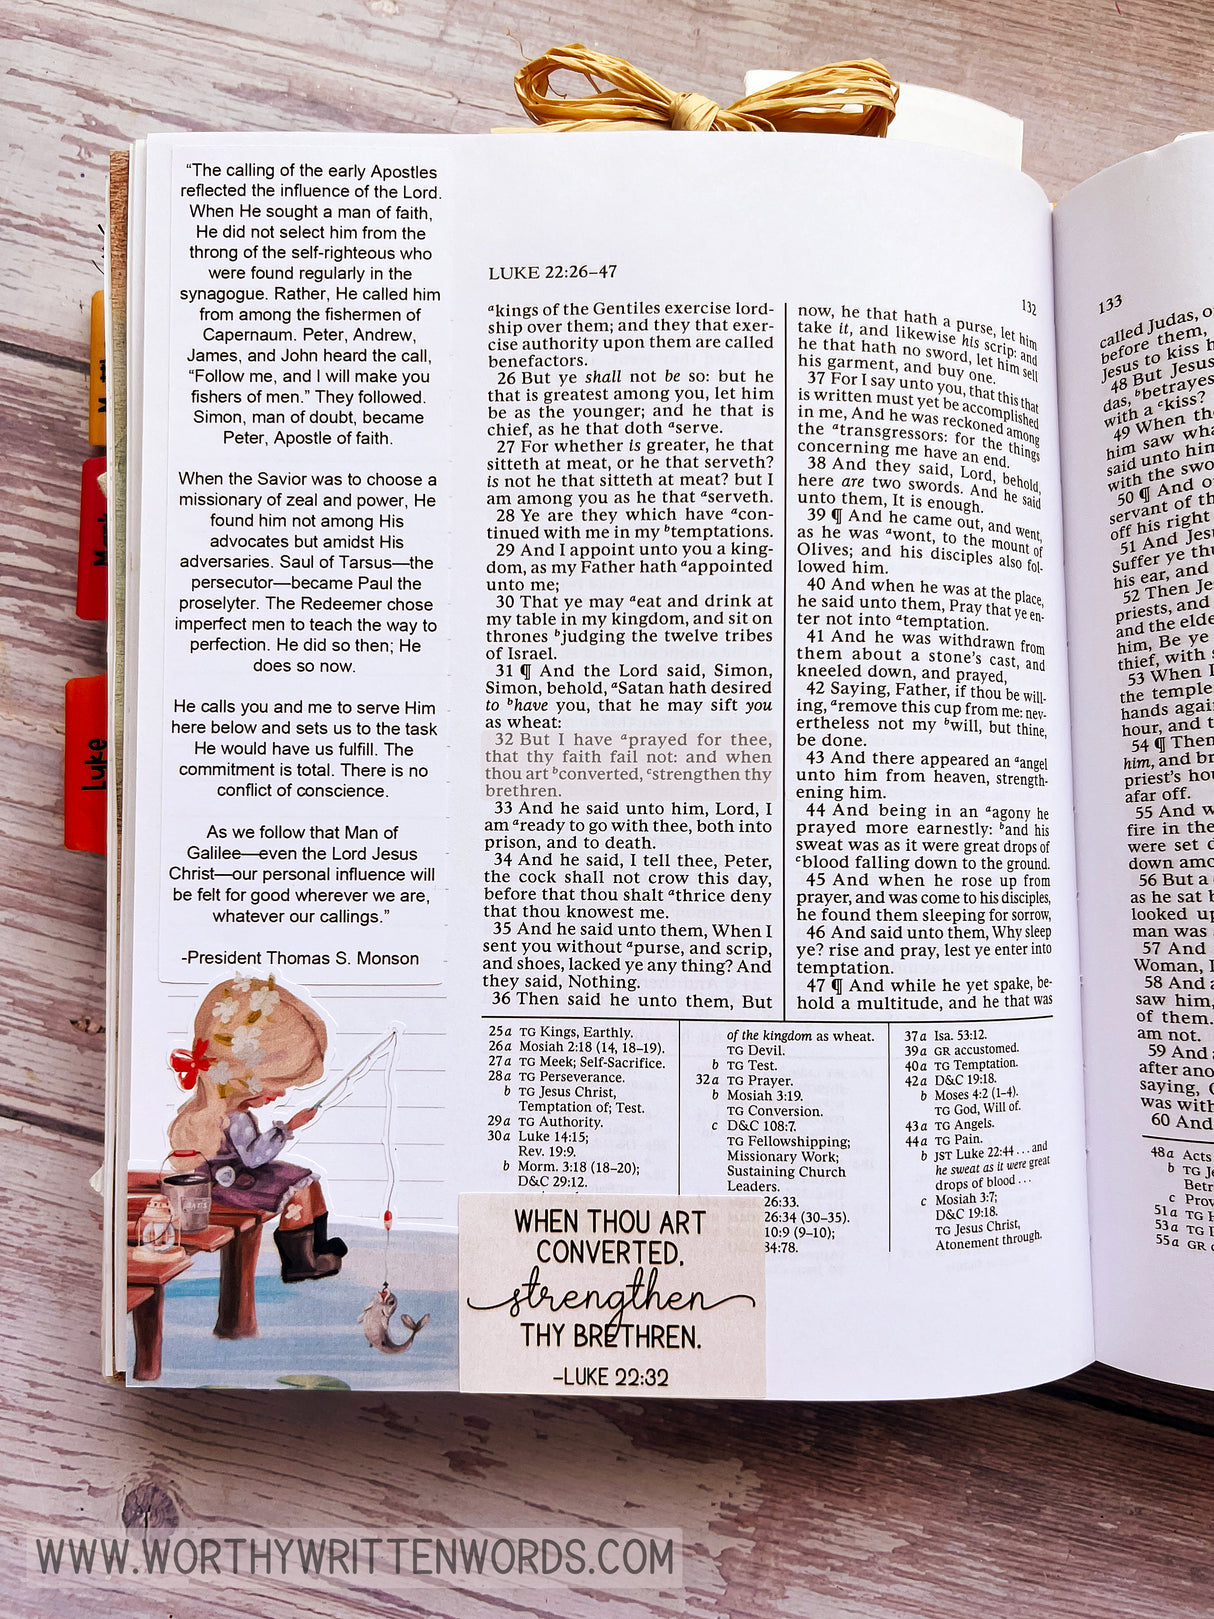 “The calling of the early Apostles
reflected the influence of the Lord.
When He sought a man of faith,
He did not select him from the
throng of the self-righteous who
were found regularly in the
synagogue. Rather, He called him
from among the fishermen of
Capernaum. Peter, Andrew,
James, and John heard the call,
“Follow me, and I will make you
fishers of men.” They followed.
Simon, man of doubt, became
Peter, Apostle of faith.
When the Savior was to choose a
missionary of zeal and power, He
found him not among His
advocates but amidst His
adversaries. Saul of Tarsus—the
persecutor—became Paul the
proselyter. The Redeemer chose
imperfect men to teach the way to
perfection. He did so then; He
does so now.
He calls you and me to serve Him
here below and sets us to the task
He would have us fulfill. The
commitment is total. There is no
conflict of conscience.
As we follow that Man of
Galilee—even the Lord Jesus
Christ—our personal influence will
be felt for good wherever we are,
whatever our callings.”
-President Thomas S. Monson
Luke
LUKE 22:26–47
132
akings of the Gentiles exercise lord-
ship over them; and they that exer-
cise authority upon them are called
benefactors.
26 But ye shall not be so: but he
that is greatest among you, let him
be as the younger; and he that is
chief, as he that doth aserve.
27 For whether is greater, he that
sitteth at meat, or he that serveth?
is not he that sitteth at meat? but I
am among you as he that aserveth.
28 Ye are they which have acon-
tinued with me in my btemptations.
29 And I appoint unto you a king-
dom, as my Father hath aappointed
unto me;
30 That ye may aeat and drink at
my table in my kingdom, and sit on
thrones bjudging the twelve tribes
of Israel.
31 ¶ And the Lord said, Simon,
Simon, behold, aSatan hath desired
to bhave you, that he may sift you
as wheat:
32 But I have aprayed for thee,
that thy faith fail not: and when
thou art bconverted, cstrengthen thy
brethren.
33 And he said unto him, Lord, I
am aready to go with thee, both into
prison, and to death.
34 And he said, I tell thee, Peter,
the cock shall not crow this day,
before that thou shalt athrice deny
that thou knowest me.
35 And he said unto them, When I
sent you without apurse, and scrip,
and shoes, lacked ye any thing? And
they said, Nothing.
36 Then said he unto them, But
now, he that hath a purse, let him
take it, and likewise his scrip: and
he that hath no sword, let him sell
his garment, and buy one.
37 For I say unto you, that this that
is written must yet be accomplished
in me, And he was reckoned among
the atransgressors: for the things
concerning me have an end.
38 And they said, Lord, behold,
here are two swords. And he said
unto them, It is enough.
39 ¶ And he came out, and went,
as he was awont, to the mount of
Olives; and his disciples also fol-
lowed him.
40 And when he was at the place,
he said unto them, Pray that ye en-
ter not into atemptation.
41 And he was withdrawn from
them about a stone’s cast, and
kneeled down, and prayed,
42 Saying, Father, if thou be will-
ing, aremove this cup from me: nev-
ertheless not my bwill, but thine,
be done.
43 And there appeared an aangel
unto him from heaven, strength-
ening him.
44 And being in an aagony he
prayed more earnestly: band his
sweat was as it were great drops of
cblood falling down to the ground.
45 And when he rose up from
prayer, and was come to his disciples,
he found them sleeping for sorrow,
46 And said unto them, Why sleep
ye? rise and pray, lest ye enter into
temptation.
47 ¶ And while he yet spake, be-
hold a multitude, and he that was
25a TG Kings, Earthly.
26a Mosiah 2:18 (14, 18–19).
27a TG Meek; Self-Sacrifice.
28a TG Perseverance.
b TG Jesus Christ,
Temptation of; Test.
29a TG Authority.
30a Luke 14:15;
Rev. 19:9.
b Morm. 3:18 (18–20);
D&C 29:12.
of the kingdom as wheat.
TG Devil.
b TG Test.
32a TG Prayer.
b Mosiah 3:19.
TG Conversion.
c D&C 108:7.
TG Fellowshipping;
Missionary Work;
Sustaining Church
Leaders.
26:33.
26:34 (30–35).
10:9 (9–10);
34:78.
37a Isa. 53:12.
39a GR accustomed.
40a TG Temptation.
42a D&C 19:18.
b Moses 4:2 (1–4).
TG God, Will of.
43a TG Angels.
44a TG Pain.
b JST Luke 22:44 . . . and
he sweat as it were great
drops of blood . . .
c Mosiah 3:7;
D&C 19:18.
TG Jesus Christ,
Atonement through.
WHEN THOU ART
CONVERTED,
strengthen
THY BRETHREN.
–LUKE 22:32
133
called Judas,
before them,
Jesus to kiss
48 But Jesus
das, bbetrayes
with a ckiss?
49 When
him saw
said unto him
with the
50 ¶ And
servant of
off his right
51 And
Suffer ye
his ear, and
52 Then
priests, and
and the
him, Be ye
thief, with
53 When I
the temple
hands
hour, and
54 ¶ Then
him, and
priest’s
afar off.
55 And
fire in the
were set
down
56 But a
as he sat
looked
man was
57 And
Woman, I
58 And
saw him,
of them.
am not.
59 And
after
saying,
was
60 And
48a Acts
b TG
Betr
c Prov
51a TG
53a TG
55a GR
WWW.WORTHYWRITTENWORDS.COM